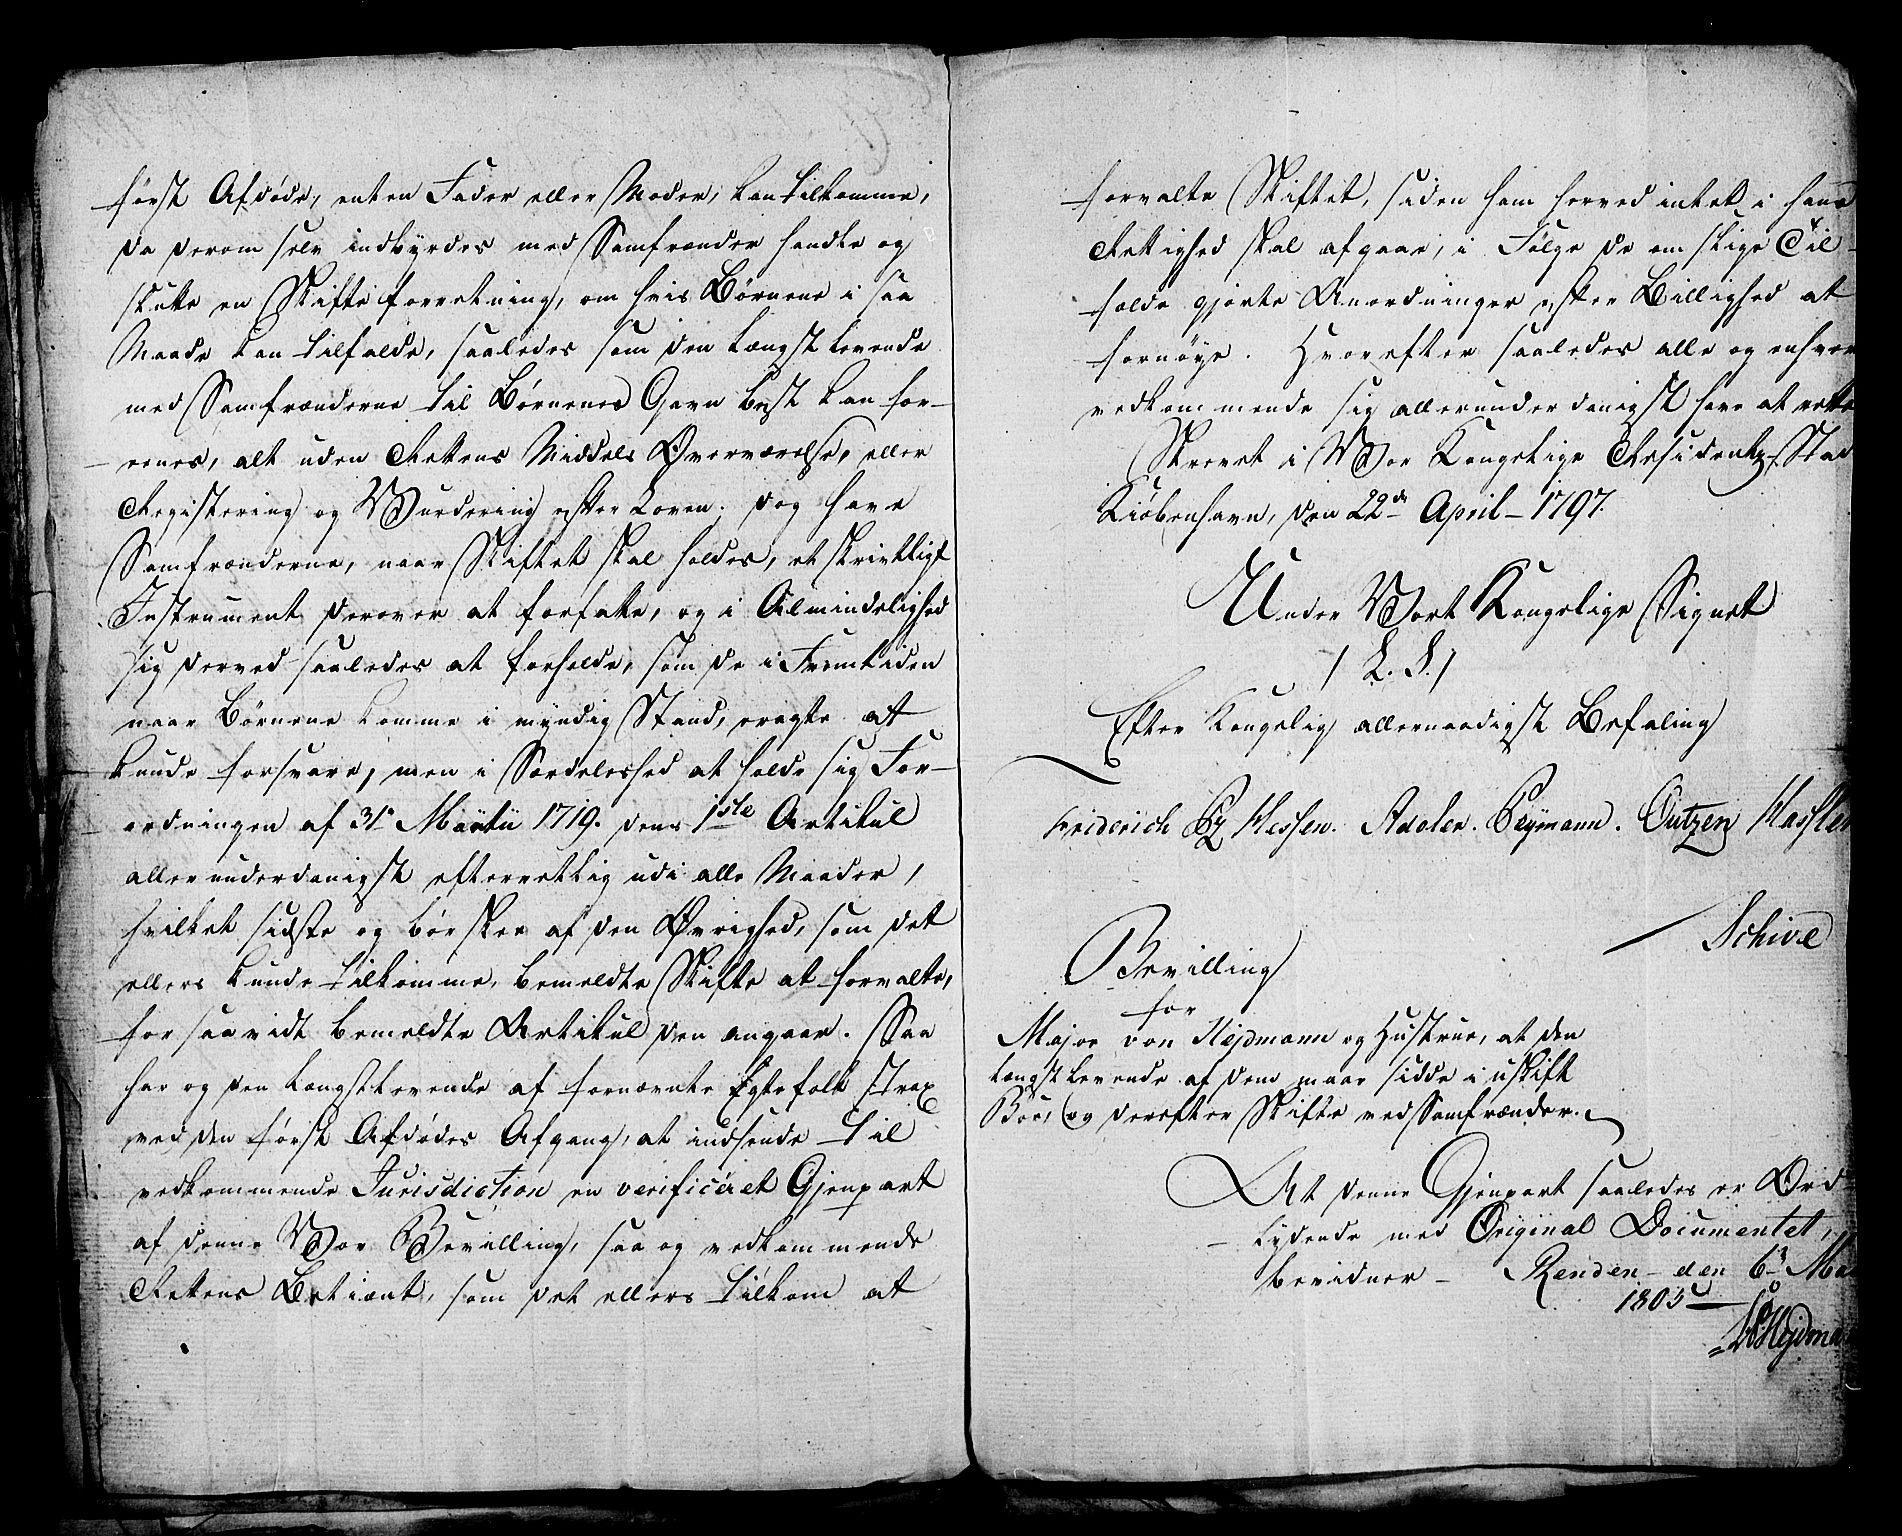 først Afdøde, enten Fader eller Moder, kan tilkomme,
da derom selv indbyrdes med Samfrænder handle og
slutte en Skifteforretning, om hvis Børnene i saa
Maade kan tilfalde, saaledes som den Længstlevende
med Samfrænderne til Børnenes Gavn best kan for-
eenes, alt uden Rettens Middels Overværelse, eller
Registering og Wurdering efter Loven; dog have
Samfrænderne, naar Skiftet skal holdes, et skrivtligt
Instrument derover at forfatte, og i Almindelighed
sig derved saaledes at forholde, som de i Fremtiden
naar Børnene komme i myndig Stand, eragte at
kunde forsvare, men i Særdeleshed at holde sig For-
ordningen af 31te Martii 1719. dens 1ste Artikul
allerunderdanigst efterrettlig udi alle Maader,
hvilket sidste og bør skee af den Øvrighed, som det
ellers kunde tilkomme, bemeldte Skifte at forvalte,
for saavidt bemeldte Artikul den angaar. Saa
har og den Længstlevende af fornævnte Egtefolk strax
ved den først Afdødes Afgang, at indsende til
vedkommende Jurisdiction en verificeret Gjenpart
af denne Vor Bevilling, saa og vedkommende
Rettens Betient, som det ellers tilkom at
forvalte Skiftet, siden ham herved intet i hans
Rettighed skal afgaae, i Følge de om slige Til-
folde gjorte Anordninger efter Billighed at
fornøye. Hvorefter saaledes alle og enhver
vedkommende sig allerunderdanigst have at rette
Skrevet i Vor Kongelige Residentz-Stad
Kiøbenhavn, den 22de April 1797.
Under Vort Kongelige Signet
/ L. S. /
Efter Kongelig allernaadigst Befaling
Friderich Pz Hessen. Adeler. Peymann. Outzen Kastler
Schive
Bevilling
for
Major von Hejdmann og Hustrue, at den
Længstlevende af dem maae sidde i uskift
Boe, og derefter Skifte ved Samfrænder.
At denne Gjenpart saaledes er Ord-
lydende med Original Documentet,
bevidner Renden den 6te Ma
1805
Hejdma